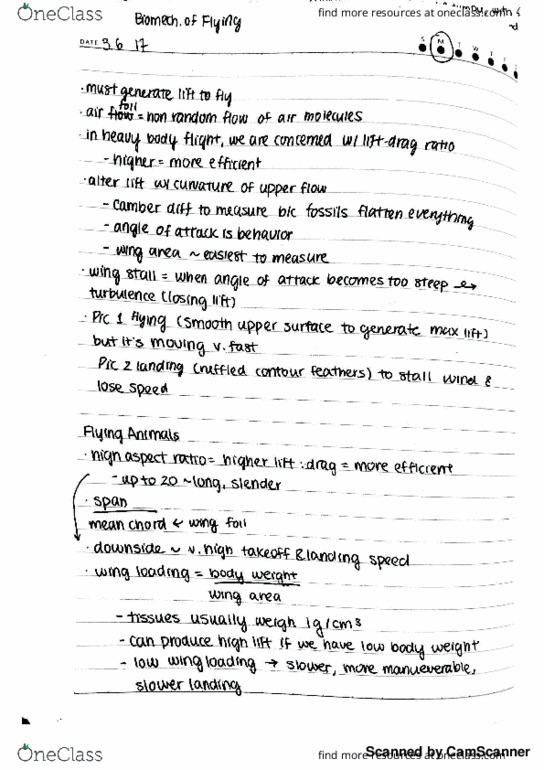 OneClass
find more resources at oneclass.com
Biomech. of Flying
DATE 3 6 17
S M T W T F S
· must generate lift to fly
· air flow foil = non random flow of air molecules
· in heavy body flight, we are concerned w/ lift-drag ratio
- higher = more efficient
· alter lift w/ curvature of upper flow
- camber diff to measure b/c fossils flatten everything
- angle of attack is behavior
- wing area ~ easiest to measure
· wing stall = when angle of attack becomes too steep →
turbulence (losing lift)
· Pic 1 flying (smooth upper surface to generate max lift)
but it's moving v. fast
Pic 2 landing (ruffled contour feathers) to stall wind &
lose speed
Flying Animals
· high aspect ratio = higher lift : drag = more efficient
- up to 20 ~ long, slender
· span
mean chord ← wing foil
· downside ~ v. high takeoff & landing speed
· wing loading = body weight
wing area
- tissues usually weigh 1g/cm3
- can produce high lift if we have low body weight
- low wing loading → slower, more manueverable,
slower landing
OneClass
find more resources at oneclass.com
Scanned by CamScanner